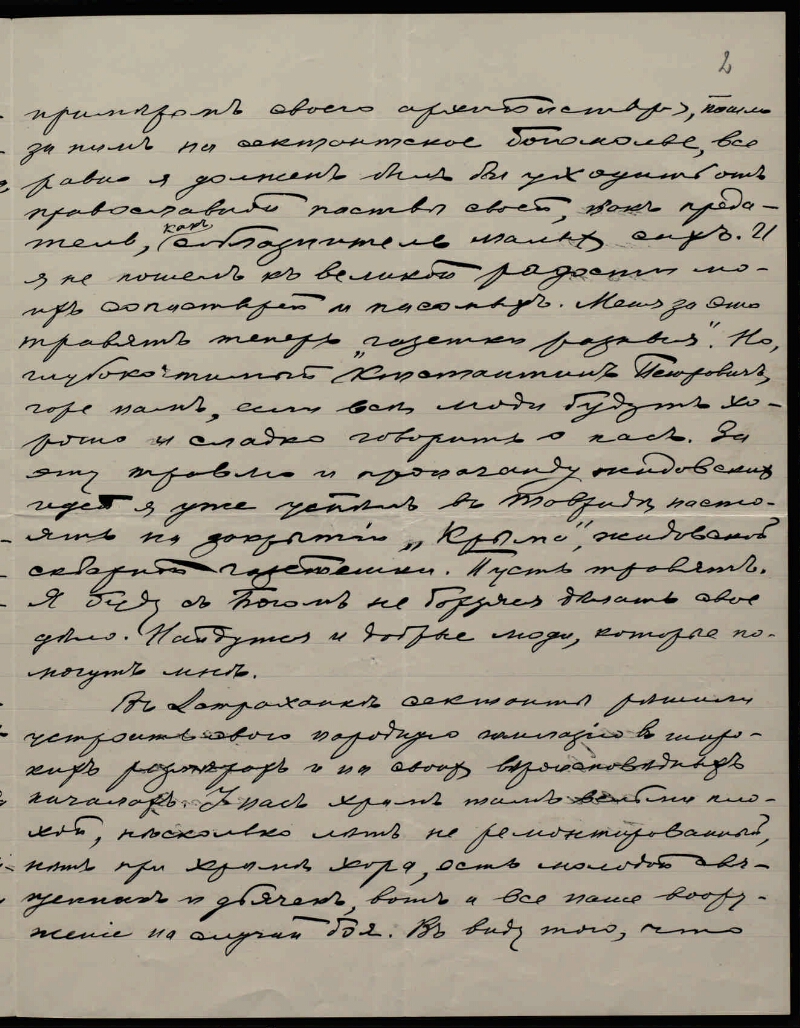 2
примѣромъ своего архипастыря, пошли
за нимъ на сектантское богомолье, все
равно я долженъ былъ бы уходить отъ
православной паствы своей, какъ преда-
тель, какъ соблазнитель малыхъ сихъ. И
я не пошелъ къ великой радости мо-
ихъ сопастырей и пасомыхъ. Меня за это
травятъ теперь „газетки разныя". Но,
глубокочтимый Константинъ Петровичъ,
горе намъ, если вси люди будутъ хо-
рошо и сладко говорить о насъ. За
эту травлю и пропаганду жидовскихъ
идей я уже успѣлъ въ Тавридѣ насто-
ять на закрытіи „Крыма", жидовской
скверной газетешки. Пусть травятъ.
Я буду съ Богомъ не борзяся дѣлать свое
дѣло. Найдутся и добрые люди, которые по-
могутъ мнѣ.
Въ Астраханкѣ сектанты рѣшили
устроить свою народную гимназію въ широ-
кихъ размѣрахъ и на своихъ вѣроисповѣдныхъ
началахъ. У насъ храмъ тамъ вельми пло-
хой, нѣсколько лѣтъ не ремонтированный,
нѣтъ при храмѣ хора, есть молодой свя-
щенникъ и дьячекъ, вотъ и все наше воору-
женіе на случай боя. Въ виду того, что